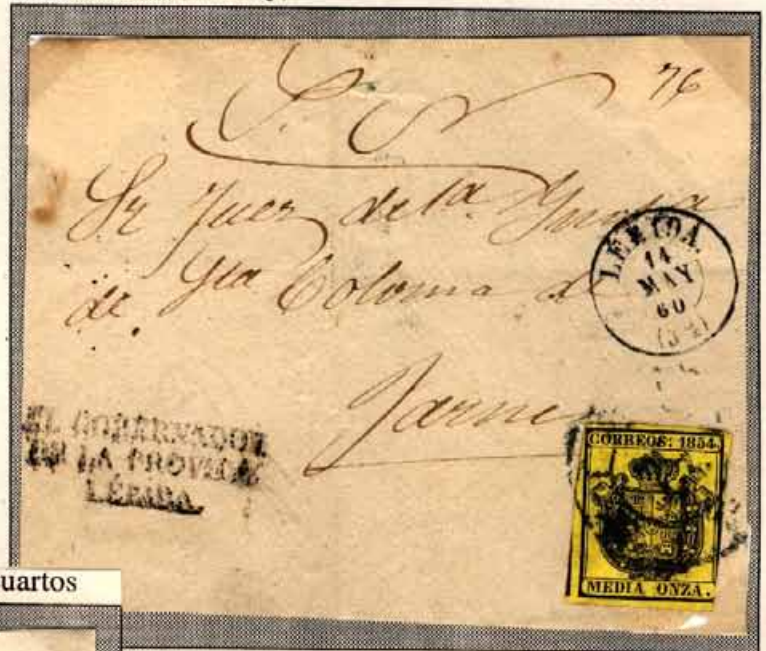 S. N
76
Sr Juez de la
de Sta Coloma de
Farnes
LÉRIDA.
14
MAY
60
EL GOBERNADOR
DE LA PROVINCIA
LÉRIDA.
CORREOS: 1854.
MEDIA ONZA.
uartos